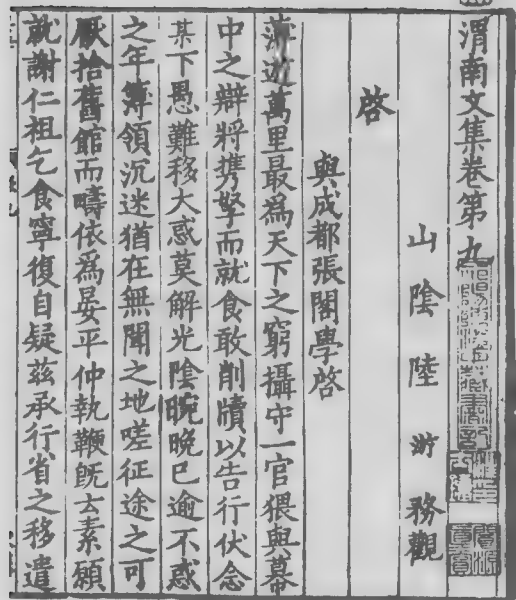 渭南文集卷第九
山陰陸游務觀
啓
與成都張閣學啓
遊萬里最爲天下之窮攝守一官猥與幕
中之辯將攜孥而就食敢削牘以告行伏念
某下愚難移大惑莫解光陰晼晚已逾不惑
之年簿領沉迷猶在無聞之地嗟征途之可
厭捨舊館而疇依爲晏平仲執鞭旣云素願
就謝仁祖乞食寧復自疑茲承行省之移遣